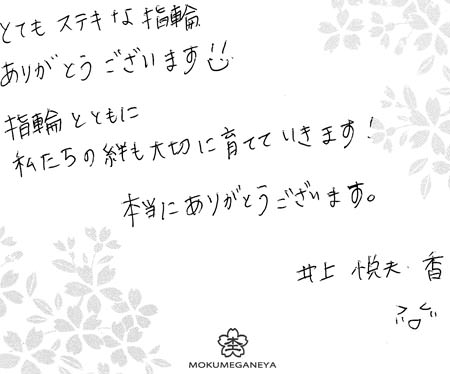 とてもステキな指輪
ありがとうございます
指輪とともに
私たちの絆も大切に育てていきます！
本当にありがとうございます。
井上 悦夫・香
MOKUMEGANEYA